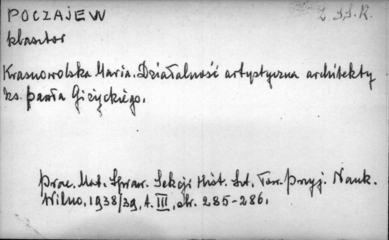 POCZAJEW
Z.S.S.R.
klasztor
Krasnowolska Maria. Działalność artystyczna architekty
ks. Pawła Giżyckiego.
Prac. Mat. Spraw. Sekcji Hist. Szt. Tow. Przyj. Nauk.
Wilno, 1938/39, t. III, str. 285-286.